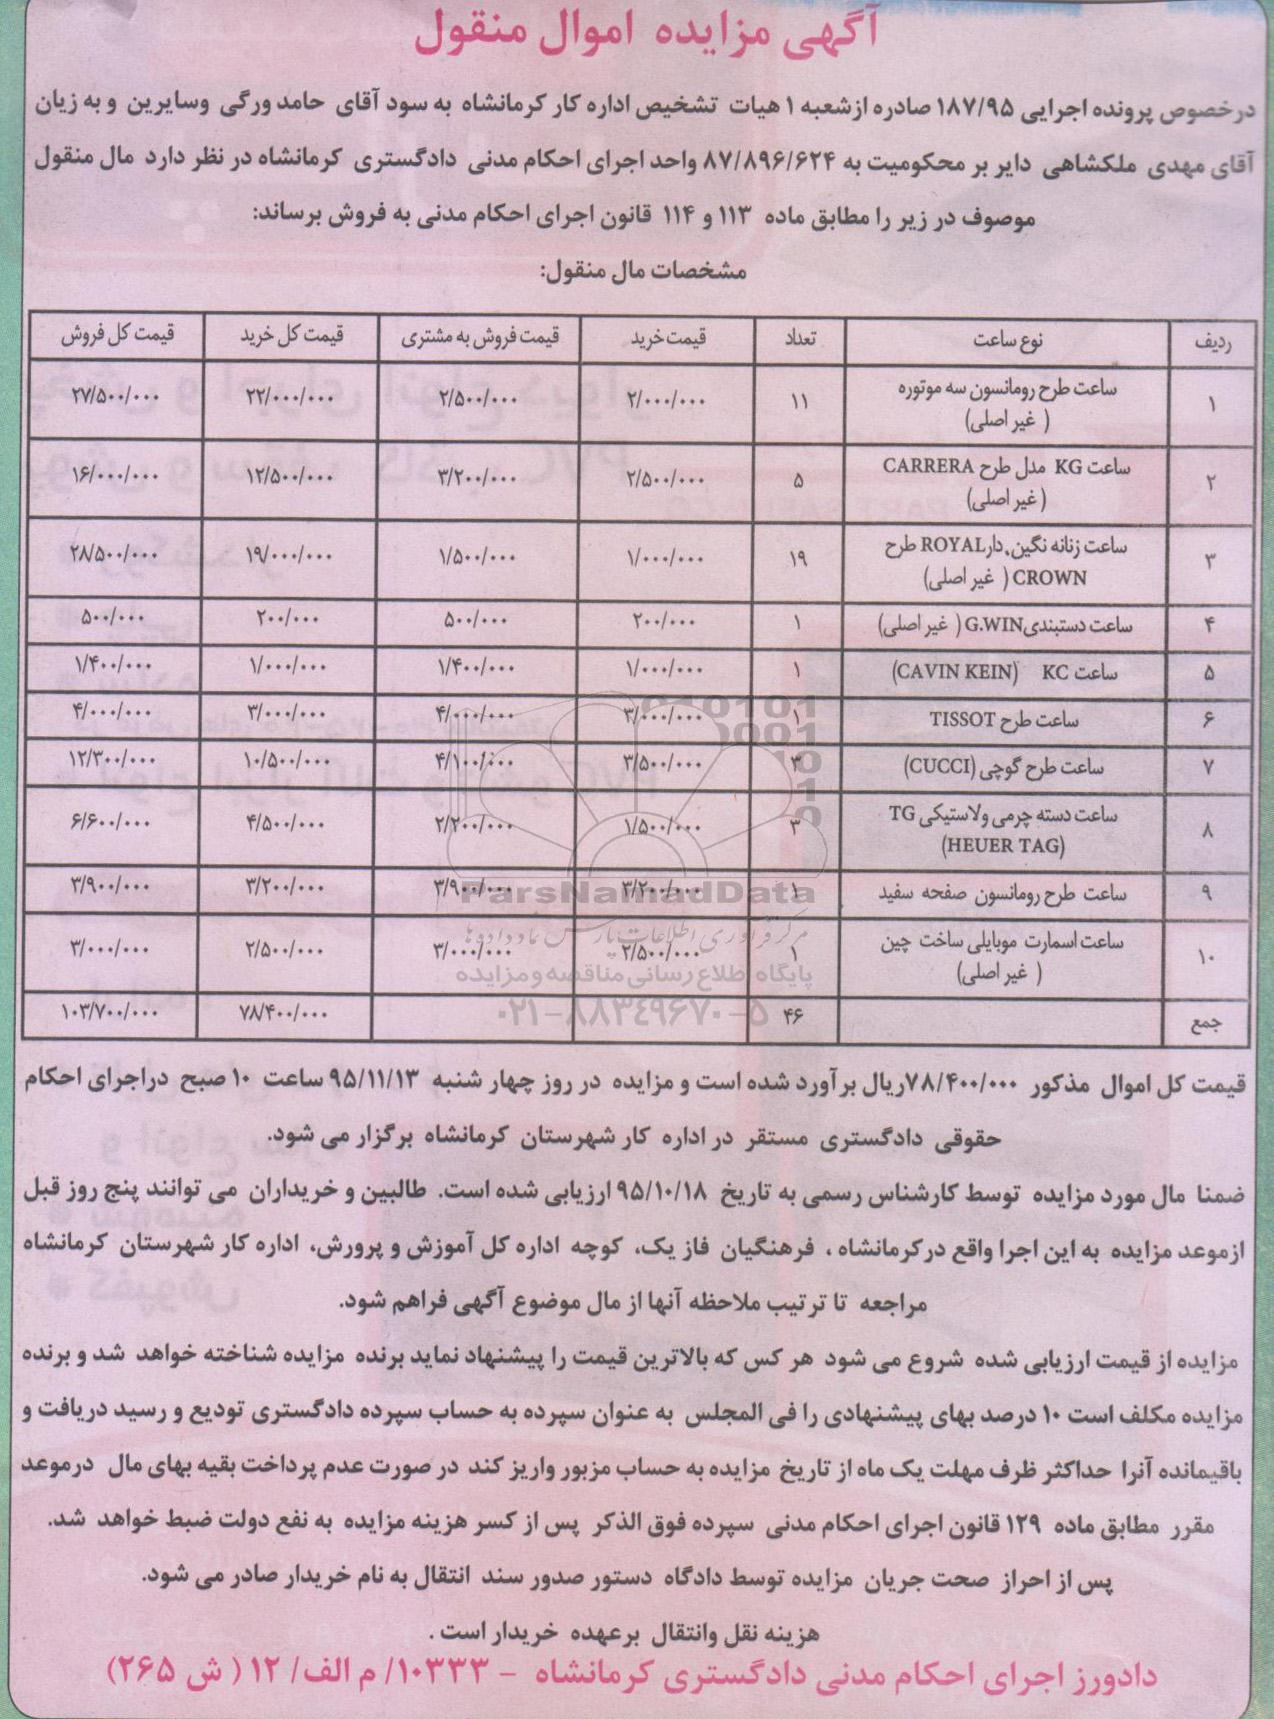 آگهی مزایده اموال منقول
درخصوص پرونده اجرایی ۱۸۷/۹۵ صادره ازشعبه ۱ هیات تشخیص اداره کار کرمانشاه به سود آقای حامد ورگی وسایرین و به زیان
آقای مهدی ملکشاهی دایر بر محکومیت به ۸۷/۸۹۶/۶۲۴ واحد اجرای احکام مدنی دادگستری کرمانشاه در نظر دارد مال منقول
موصوف در زیر را مطابق ماده ۱۱۳ و ۱۱۴ قانون اجرای احکام مدنی به فروش برساند:
مشخصات مال منقول:
ردیف نوع ساعت تعداد قیمت خرید قیمت فروش به مشتری قیمت کل خرید قیمت کل فروش
۱ ساعت طرح رومانسون سه موتوره ۱۱ ۲/۰۰۰/۰۰۰ ۲/۵۰۰/۰۰۰ ۲۲/۰۰۰/۰۰۰ ۲۷/۵۰۰/۰۰۰
( غیر اصلی)
۲ ساعت KG مدل طرح CARRERA ۵ ۲/۵۰۰/۰۰۰ ۳/۲۰۰/۰۰۰ ۱۲/۵۰۰/۰۰۰ ۱۶/۰۰۰/۰۰۰
(غیر اصلی)
۳ ساعت زنانه نگین.دارROYAL طرح ۱۹ ۱/۰۰۰/۰۰۰ ۱/۵۰۰/۰۰۰ ۱۹/۰۰۰/۰۰۰ ۲۸/۵۰۰/۰۰۰
CROWN ( غیر اصلی)
۴ ساعت دستبندیG.WIN ( غیر اصلی) ۱ ۲۰۰/۰۰۰ ۵۰۰/۰۰۰ ۲۰۰/۰۰۰ ۵۰۰/۰۰۰
۵ ساعت KC (CAVIN KEIN) ۱ ۱/۰۰۰/۰۰۰ ۱/۴۰۰/۰۰۰ ۱/۰۰۰/۰۰۰ ۱/۴۰۰/۰۰۰
۶ ساعت طرح TISSOT ۱ ۳/۰۰۰/۰۰۰ ۴/۰۰۰/۰۰۰ ۳/۰۰۰/۰۰۰ ۴/۰۰۰/۰۰۰
۷ ساعت طرح گوچی (CUCCI) ۳ ۳/۵۰۰/۰۰۰ ۴/۱۰۰/۰۰۰ ۱۰/۵۰۰/۰۰۰ ۱۲/۳۰۰/۰۰۰
۸ ساعت دسته چرمی ولاستیکی TG ۳ ۱/۵۰۰/۰۰۰ ۲/۲۰۰/۰۰۰ ۴/۵۰۰/۰۰۰ ۶/۶۰۰/۰۰۰
(HEUER TAG)
۹ ساعت طرح رومانسون صفحه سفید ۱ ۳/۲۰۰/۰۰۰ ۳/۹۰۰/۰۰۰ ۳/۲۰۰/۰۰۰ ۳/۹۰۰/۰۰۰
۱۰ ساعت اسمارت موبایلی ساخت چین ۱ ۲/۵۰۰/۰۰۰ ۳/۰۰۰/۰۰۰ ۲/۵۰۰/۰۰۰ ۳/۰۰۰/۰۰۰
( غیر اصلی)
جمع ۴۶ ۷۸/۴۰۰/۰۰۰ ۱۰۳/۷۰۰/۰۰۰
ParsNamadData
مرکز فرآوری اطلاعات پارس نماد داده ها
پایگاه اطلاع رسانی مناقصه و مزایده
۰۲۱-۸۸۳۴۹۶۷۰-۵
قیمت کل اموال مذکور ۷۸/۴۰۰/۰۰۰ریال برآورد شده است و مزایده در روز چهار شنبه ۹۵/۱۱/۱۳ ساعت ۱۰ صبح دراجرای احکام
حقوقی دادگستری مستقر در اداره کار شهرستان کرمانشاه برگزار می شود.
ضمنا مال مورد مزایده توسط کارشناس رسمی به تاریخ ۹۵/۱۰/۱۸ ارزیابی شده است. طالبین و خریداران می توانند پنج روز قبل
ازموعد مزایده به این اجرا واقع درکرمانشاه ، فرهنگیان فاز یک، کوچه اداره کل آموزش و پرورش، اداره کار شهرستان کرمانشاه
مراجعه تا ترتیب ملاحظه آنها از مال موضوع آگهی فراهم شود.
مزایده از قیمت ارزیابی شده شروع می شود هر کس که بالاترین قیمت را پیشنهاد نماید برنده مزایده شناخته خواهد شد و برنده
مزایده مکلف است ۱۰ درصد بهای پیشنهادی را فی المجلس به عنوان سپرده به حساب سپرده دادگستری تودیع و رسید دریافت و
باقیمانده آنرا حداکثر ظرف مهلت یک ماه از تاریخ مزایده به حساب مزبور واریز کند در صورت عدم پرداخت بقیه بهای مال درموعد
مقرر مطابق ماده ۱۲۹ قانون اجرای احکام مدنی سپرده فوق الذکر پس از کسر هزینه مزایده به نفع دولت ضبط خواهد شد.
پس از احراز صحت جریان مزایده توسط دادگاه دستور صدور سند انتقال به نام خریدار صادر می شود.
هزینه نقل وانتقال برعهده خریدار است .
دادورز اجرای احکام مدنی دادگستری کرمانشاه - ۱۰۳۳۳/ م الف/ ۱۲ ( ش ۲۶۵)